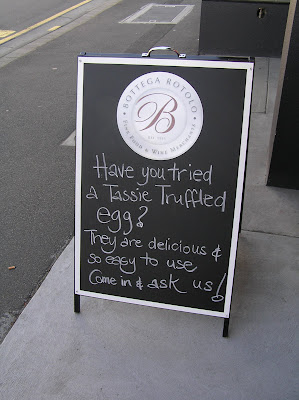 BOTTEGA ROTOLO
BOTTEGA ROTOLO
B
FINE FOOD & WINE MERCHANTS
Have you tried
a Tassie Truffled
egg?
They are delicious &
so easy to use
Come in & ask us!